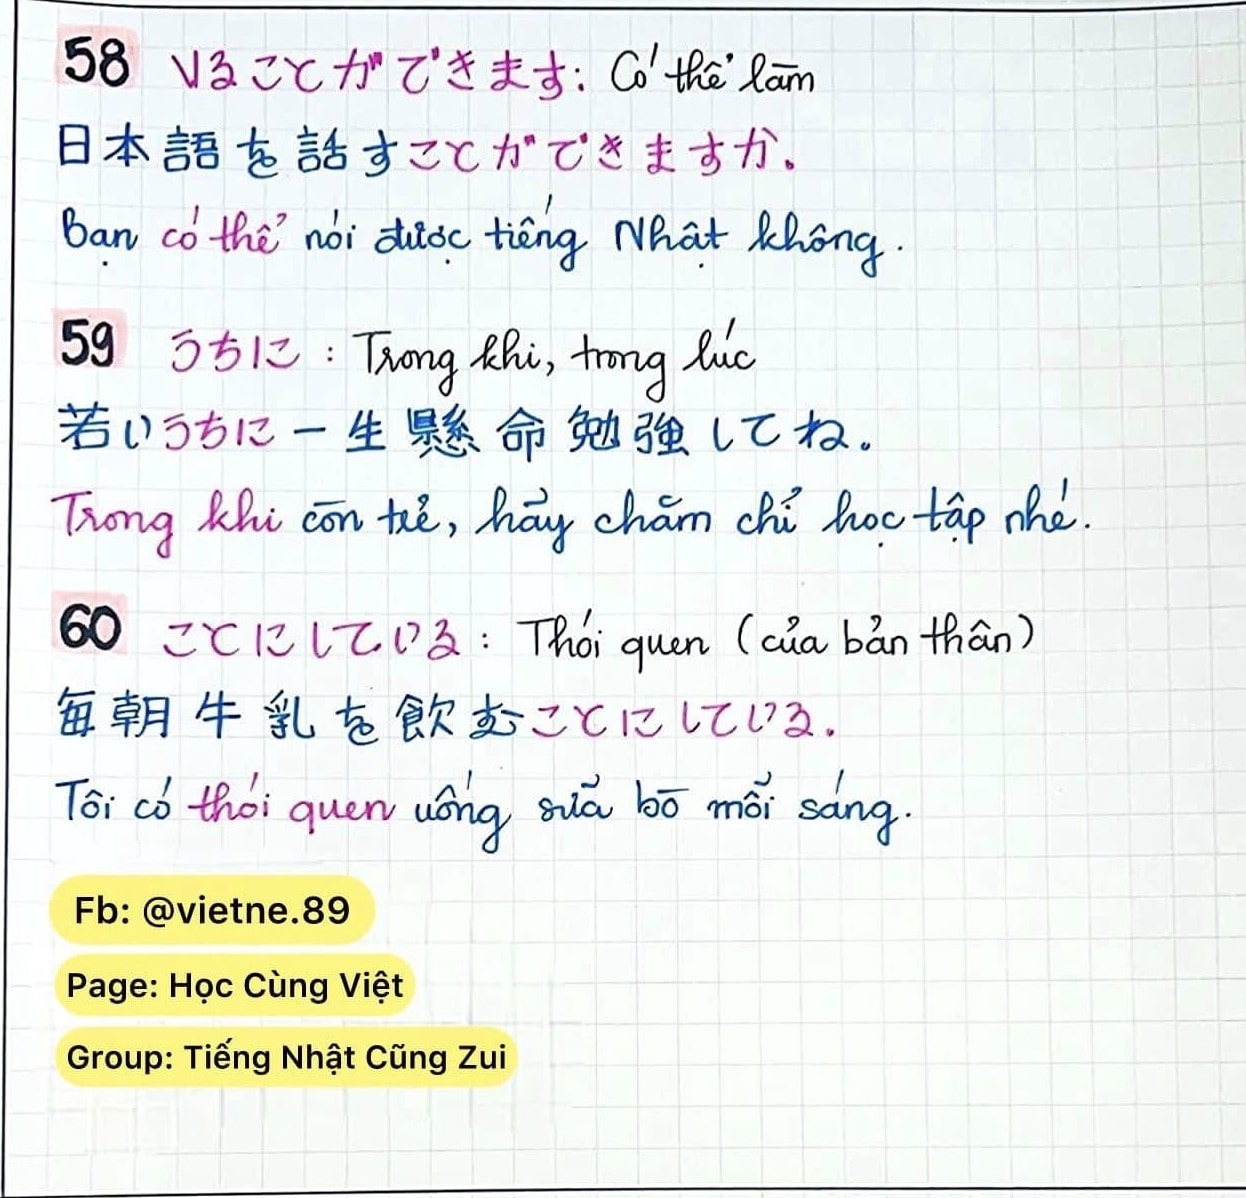 58 Vることができます: Có thể làm
日本語を話すことができますか。
Bạn có thể nói được tiếng Nhật không.
59 うちに : Trong khi, trong lúc
若いうちに一生懸命勉強してね。
Trong khi còn trẻ, hãy chăm chỉ học tập nhé.
60 ことにしている : Thói quen (của bản thân)
毎朝牛乳を飲むことにしている.
Tôi có thói quen uống sữa bò mỗi sáng.
Fb: @vietne.89
Page: Học Cùng Việt
Group: Tiếng Nhật Cũng Zui